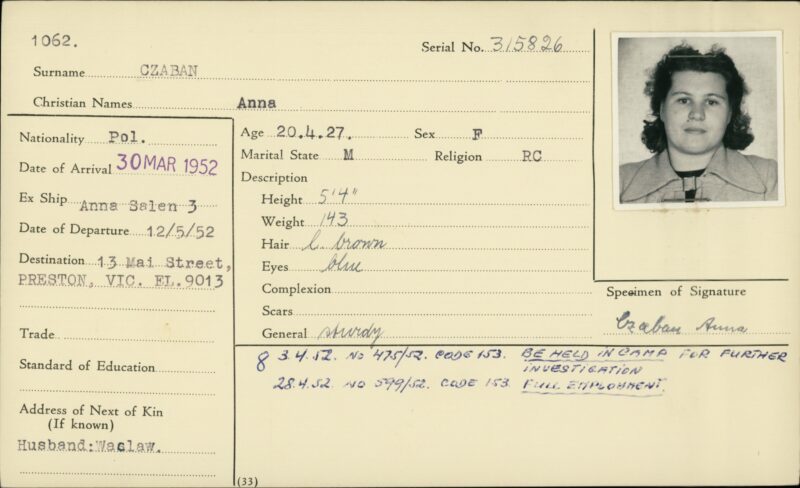 1062.
Serial No. 315826
Surname CZABAN
Christian Names Anna
Nationality Pol.
Date of Arrival 30 MAR 1952
Ex Ship Anna Salen 3
Date of Departure 12/5/52
Destination 13 Mai Street,
PRESTON, VIC. EL.9013
Trade
Standard of Education
Address of Next of Kin
(If known)
Husband:Waclaw.
Age 20.4.27. Sex F
Marital State M Religion RC
Description
Height 5'4"
Weight 143
Hair l. brown
Eyes blue
Complexion
Scars
General sturdy
Specimen of Signature
Czaban Anna
8 3.4.52. NO 475/52. CODE 153. BE HELD IN CAMP FOR FURTHER
INVESTIGATION
28.4.52. NO 599/52. CODE 153 FULL EMPLOYMENT.
(33)